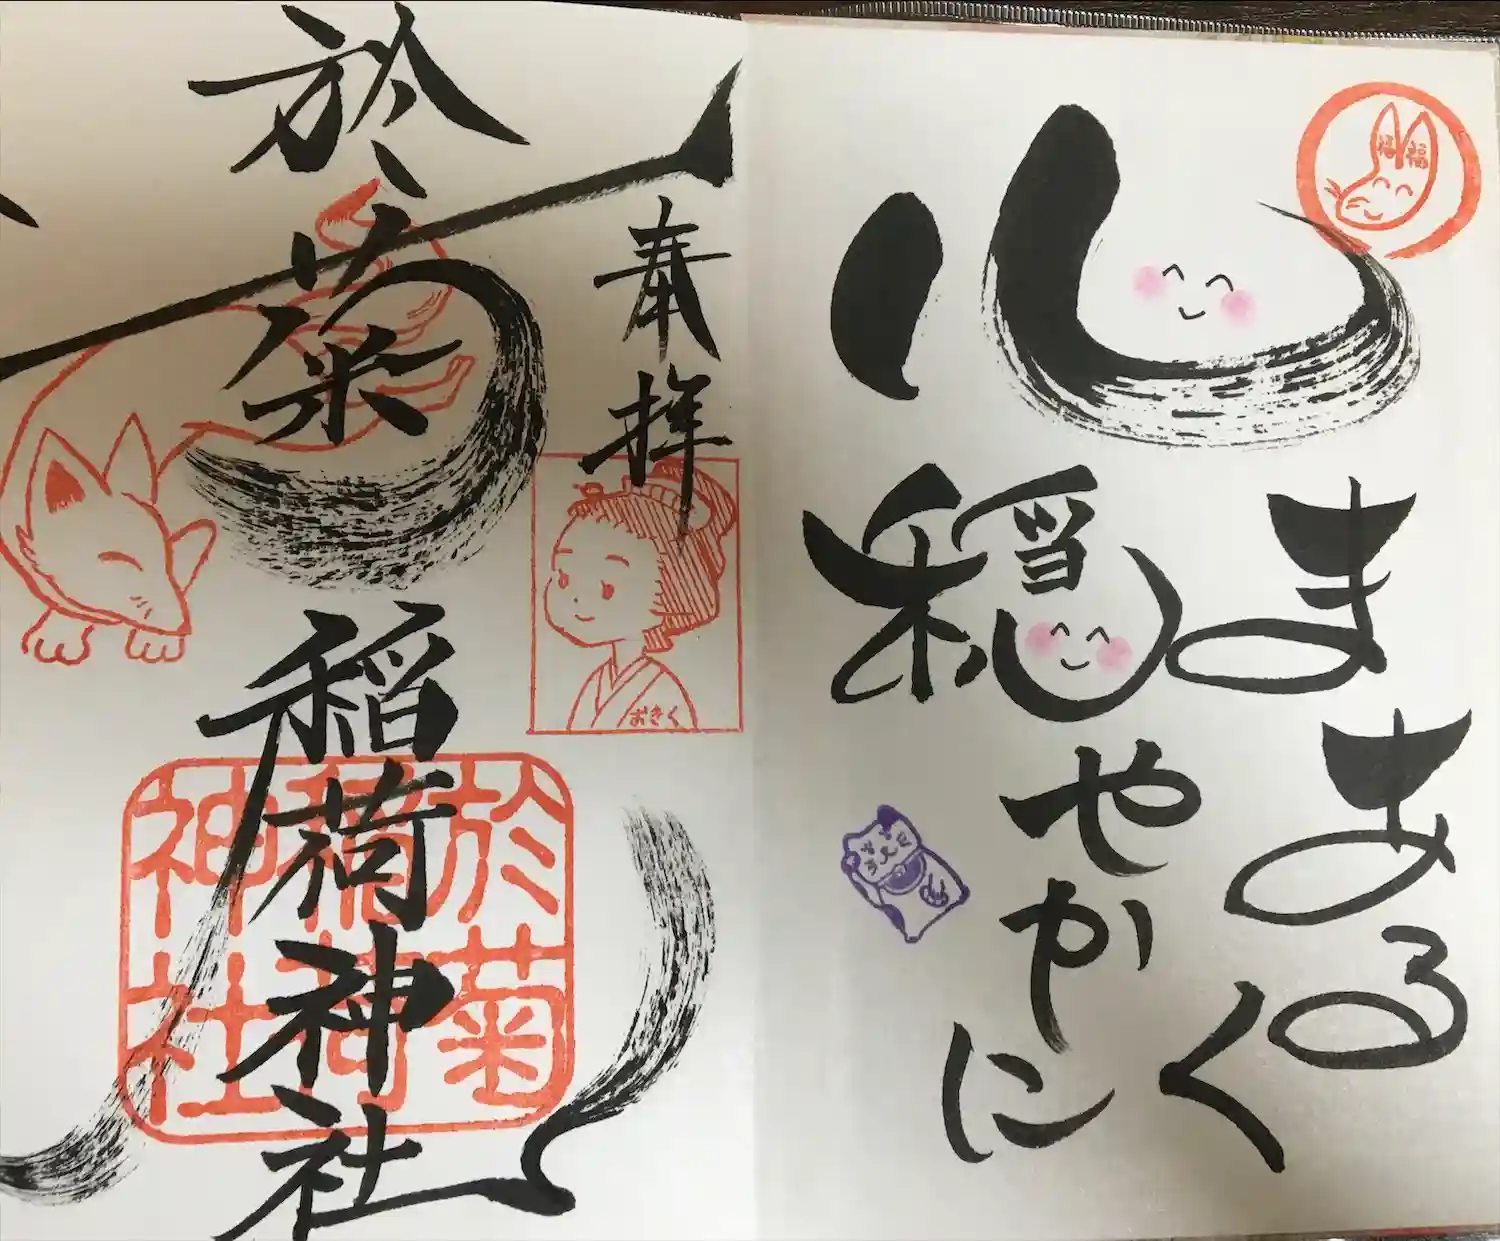 福
まあるく
心穏やかに
奉拝
おきく
於菊稲荷神社
於菊
稲荷
神社